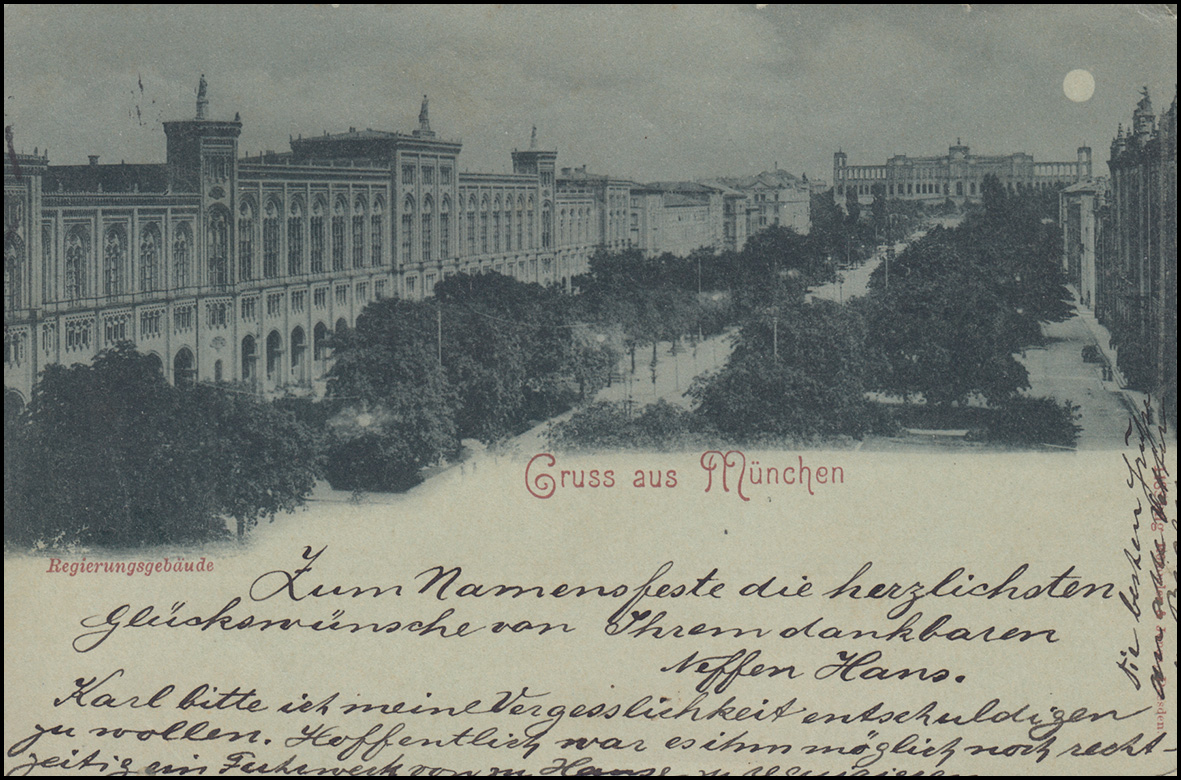 Gruss aus München
Regierungsgebäude
Zum Namensfeste die herzlichsten
Glückswünsche von Ihrem dankbaren
Neffen Hans.
Karl bitte ich meine Vergesslichkeit entschuldigen
zu wollen. Hoffentlich war es ihm möglich noch recht-
zeitig ein Fuhrwerk von zu Hause zu requirieren
die besten Grüße